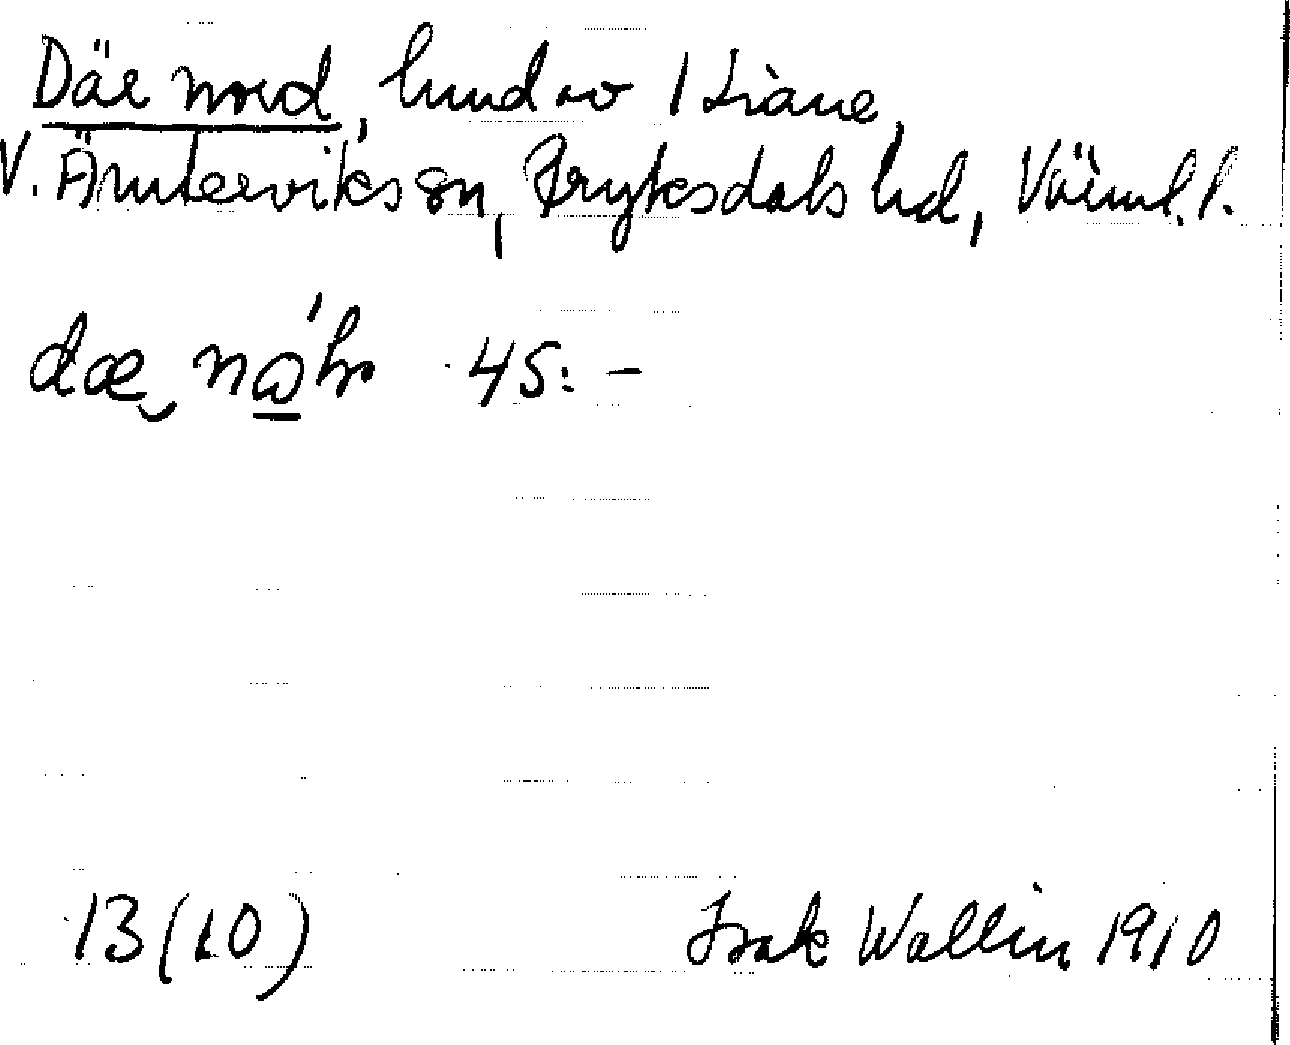 Där nord, hund av 1 Liane,
V. Ämterviks sn, Fryksdals hd, Värml. l.
dæ 45:-
13(10) Isak Wallin 1910